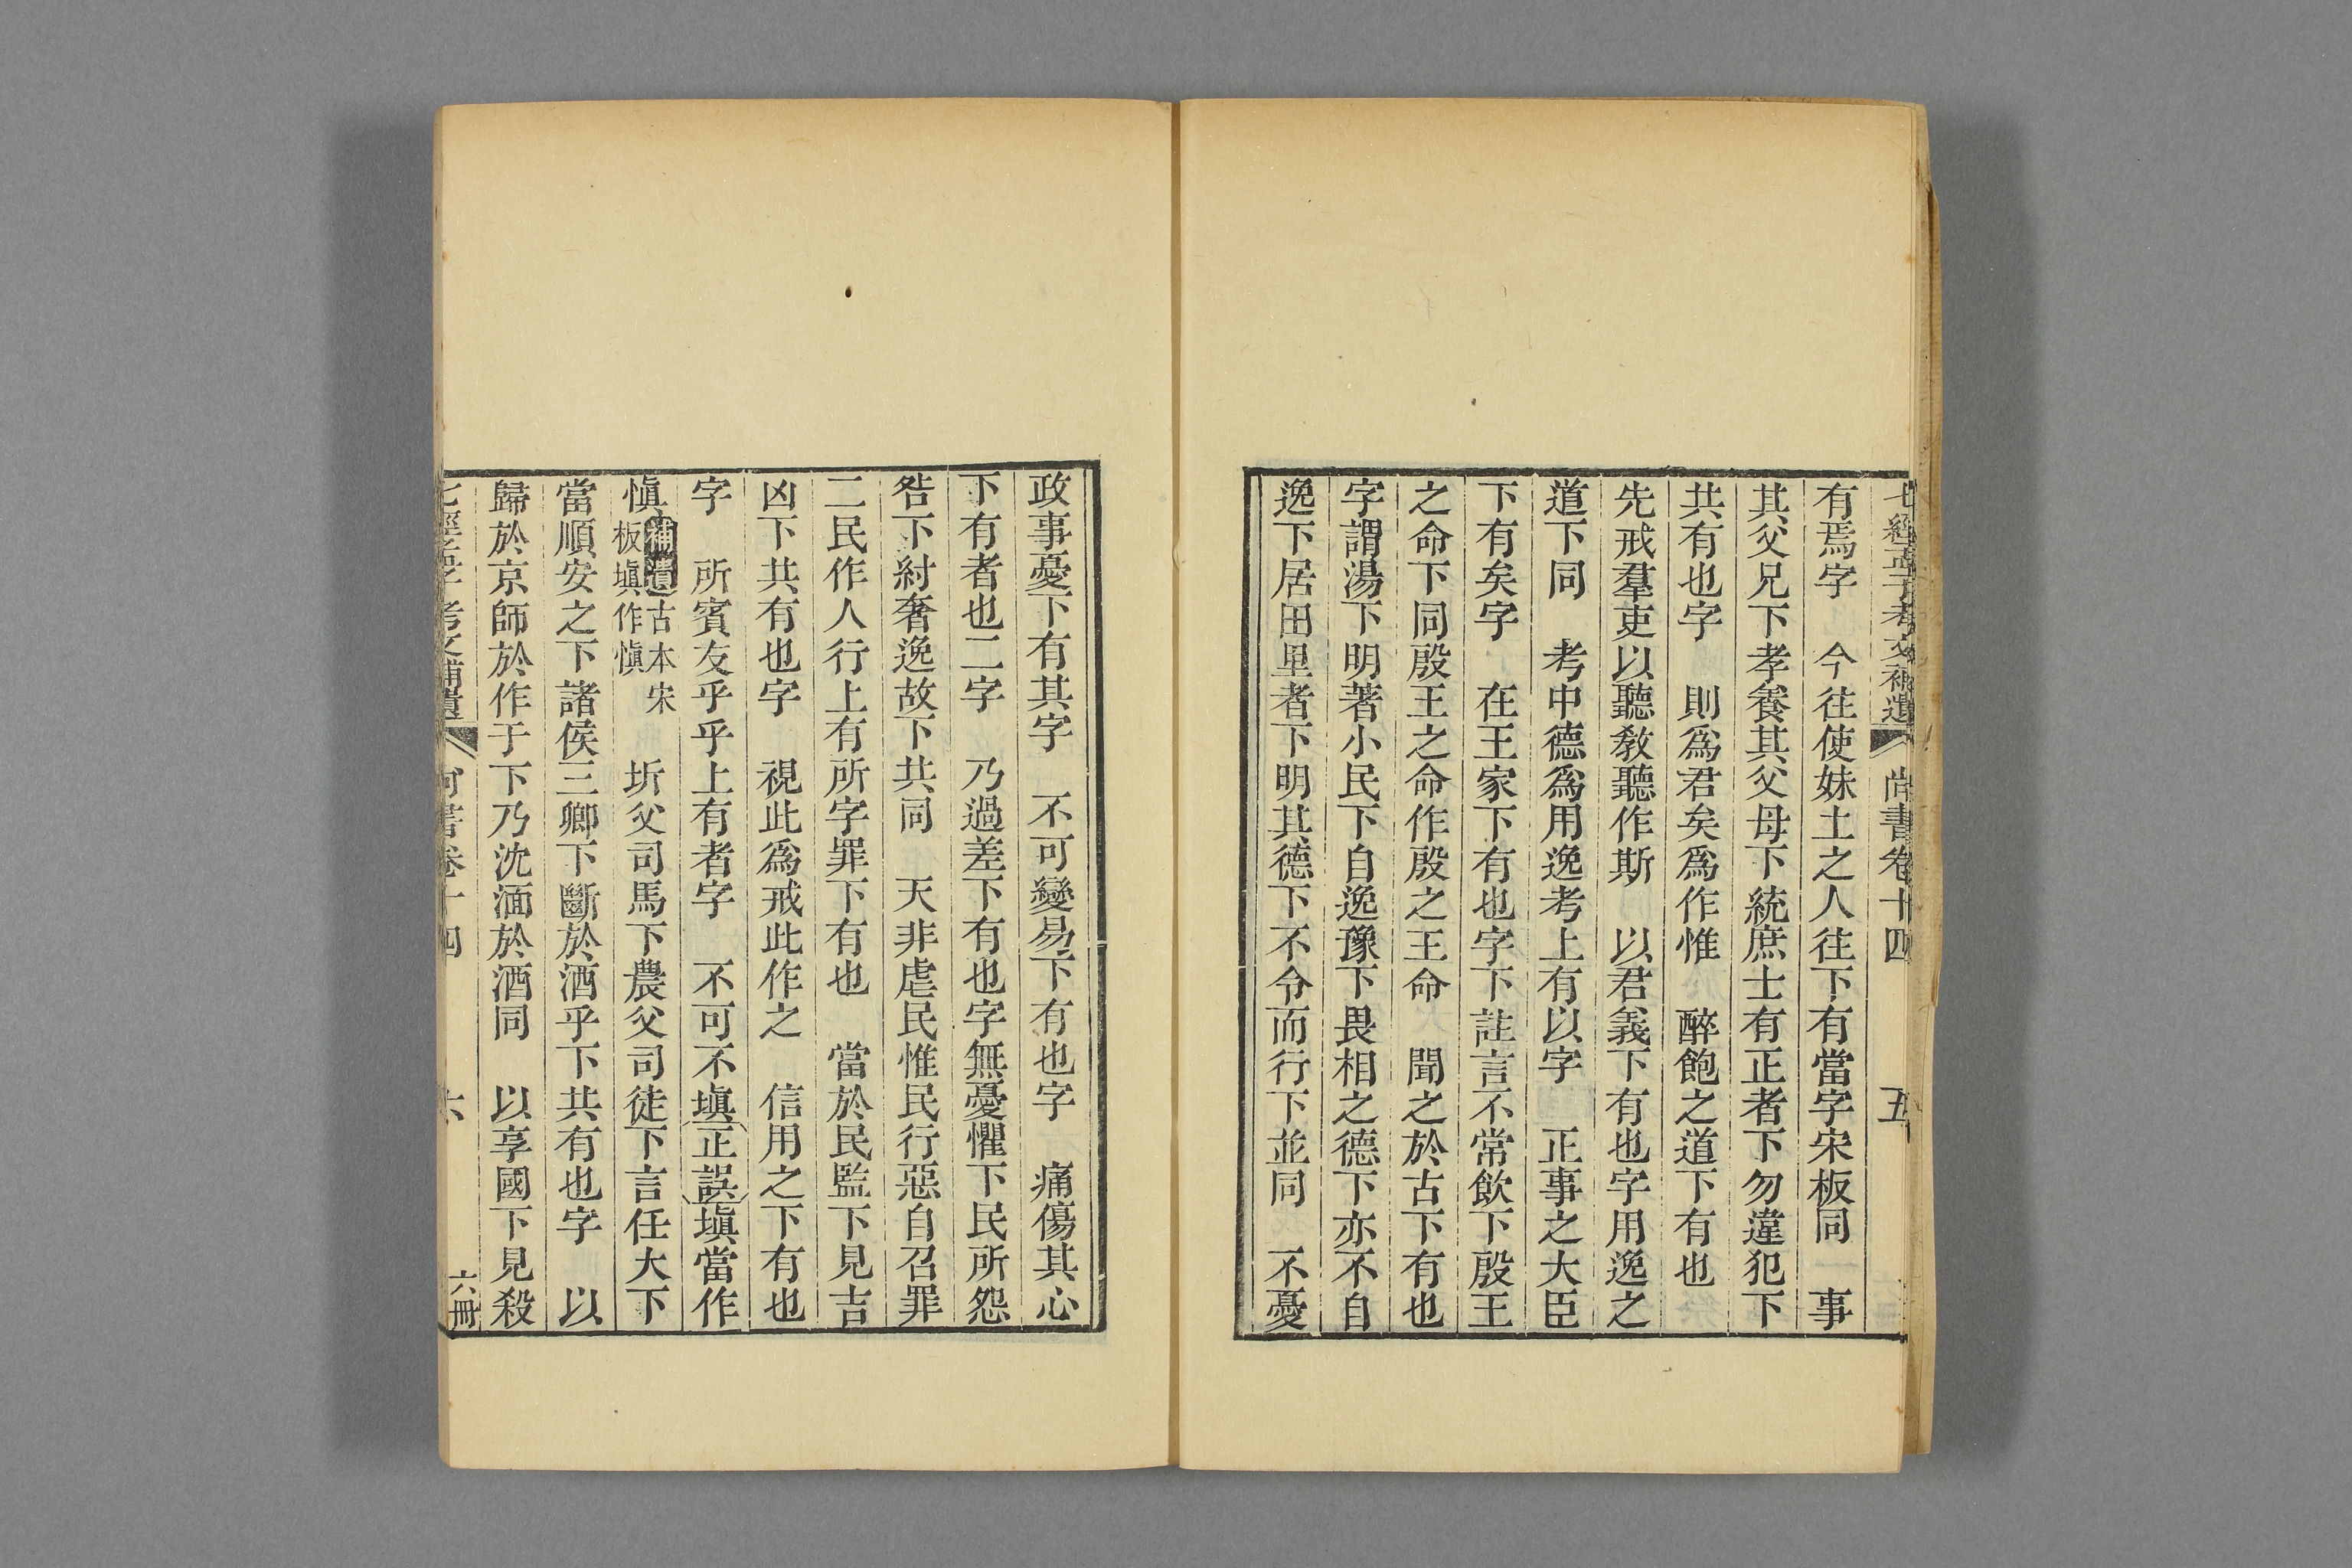 七經孟子考文補遺　尚書卷十四　五
有焉字　今往使妹土之人往下有當字宋板同　事
其父兄下孝養其父母下統庶士有正者下勿違犯下
共有也字　則爲君矣爲作惟　醉飽之道下有也
先戒羣吏以聽教聽作斯　以君義下有也字用逸之
道下同　考中德爲用逸考上有以字　正事之大臣
下有矣字　在王家下有也字下註言不常飲下殷王
之命下同殷王之命作殷之王命　聞之於古下有也
字謂湯下明著小民下自逸豫下畏相之德下亦不自
逸下居田里者下明其德下不令而行下並同　不憂
政事憂下有其字　不可變易下有也字　痛傷其心
下有者也二字　乃過差下有也字無憂懼下民所怨
咎下紂奢逸故下共同　天非虐民惟民行惡自召罪
二民作人行上有所字罪下有也　當於民監下見吉
凶下共有也字　視此爲戒此作之　信用之下有也
字　所賓友乎乎上有者字　不可不塡正誤塡當作
愼補遺古本宋板塡作愼　圻父司馬下農父司徒下言任大下
當順安之下諸侯三卿下斷於酒乎下共有也字　以
歸於京師於作于下乃沈湎於酒同　以享國下見殺
七經孟子考文補遺　尚書卷十四　六　六冊